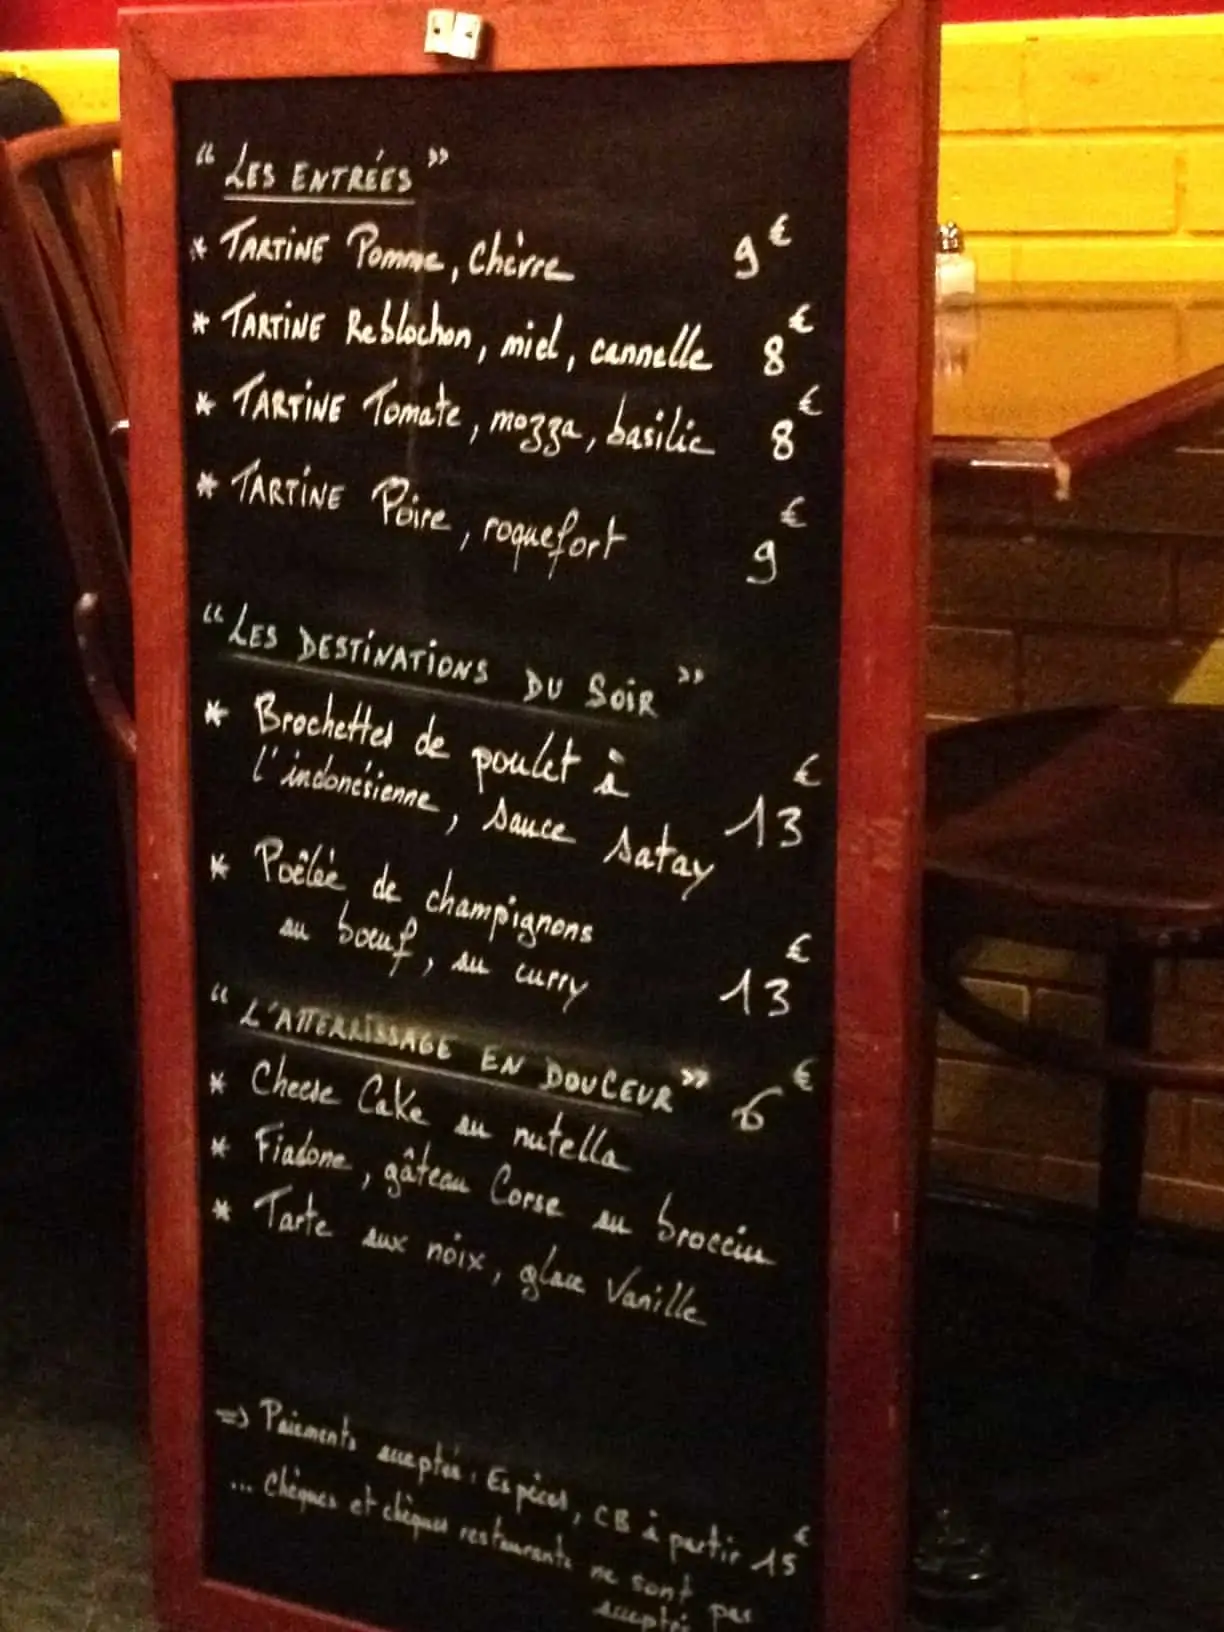 “ LES ENTRÉES ”
* TARTINE Pomme, Chèvre 9€
* TARTINE Reblochon, miel, cannelle 8€
* TARTINE Tomate, mozza, basilic 8€
* TARTINE Poire, roquefort 9€
“ LES DESTINATIONS DU SOIR ”
* Brochettes de poulet à
l'indonésienne, sauce satay 13€
* Poêlée de champignons
au bœuf, au curry 13€
“ L'ATTERRISSAGE EN DOUCEUR ” 6€
* Cheese Cake au nutella
* Fiadone, gâteau Corse au broccin
* Tarte aux noix, glace Vanille
=> Paiements acceptés : Espèces, CB à partir 15€
... Chèques et chèques restaurants ne sont pas
acceptés